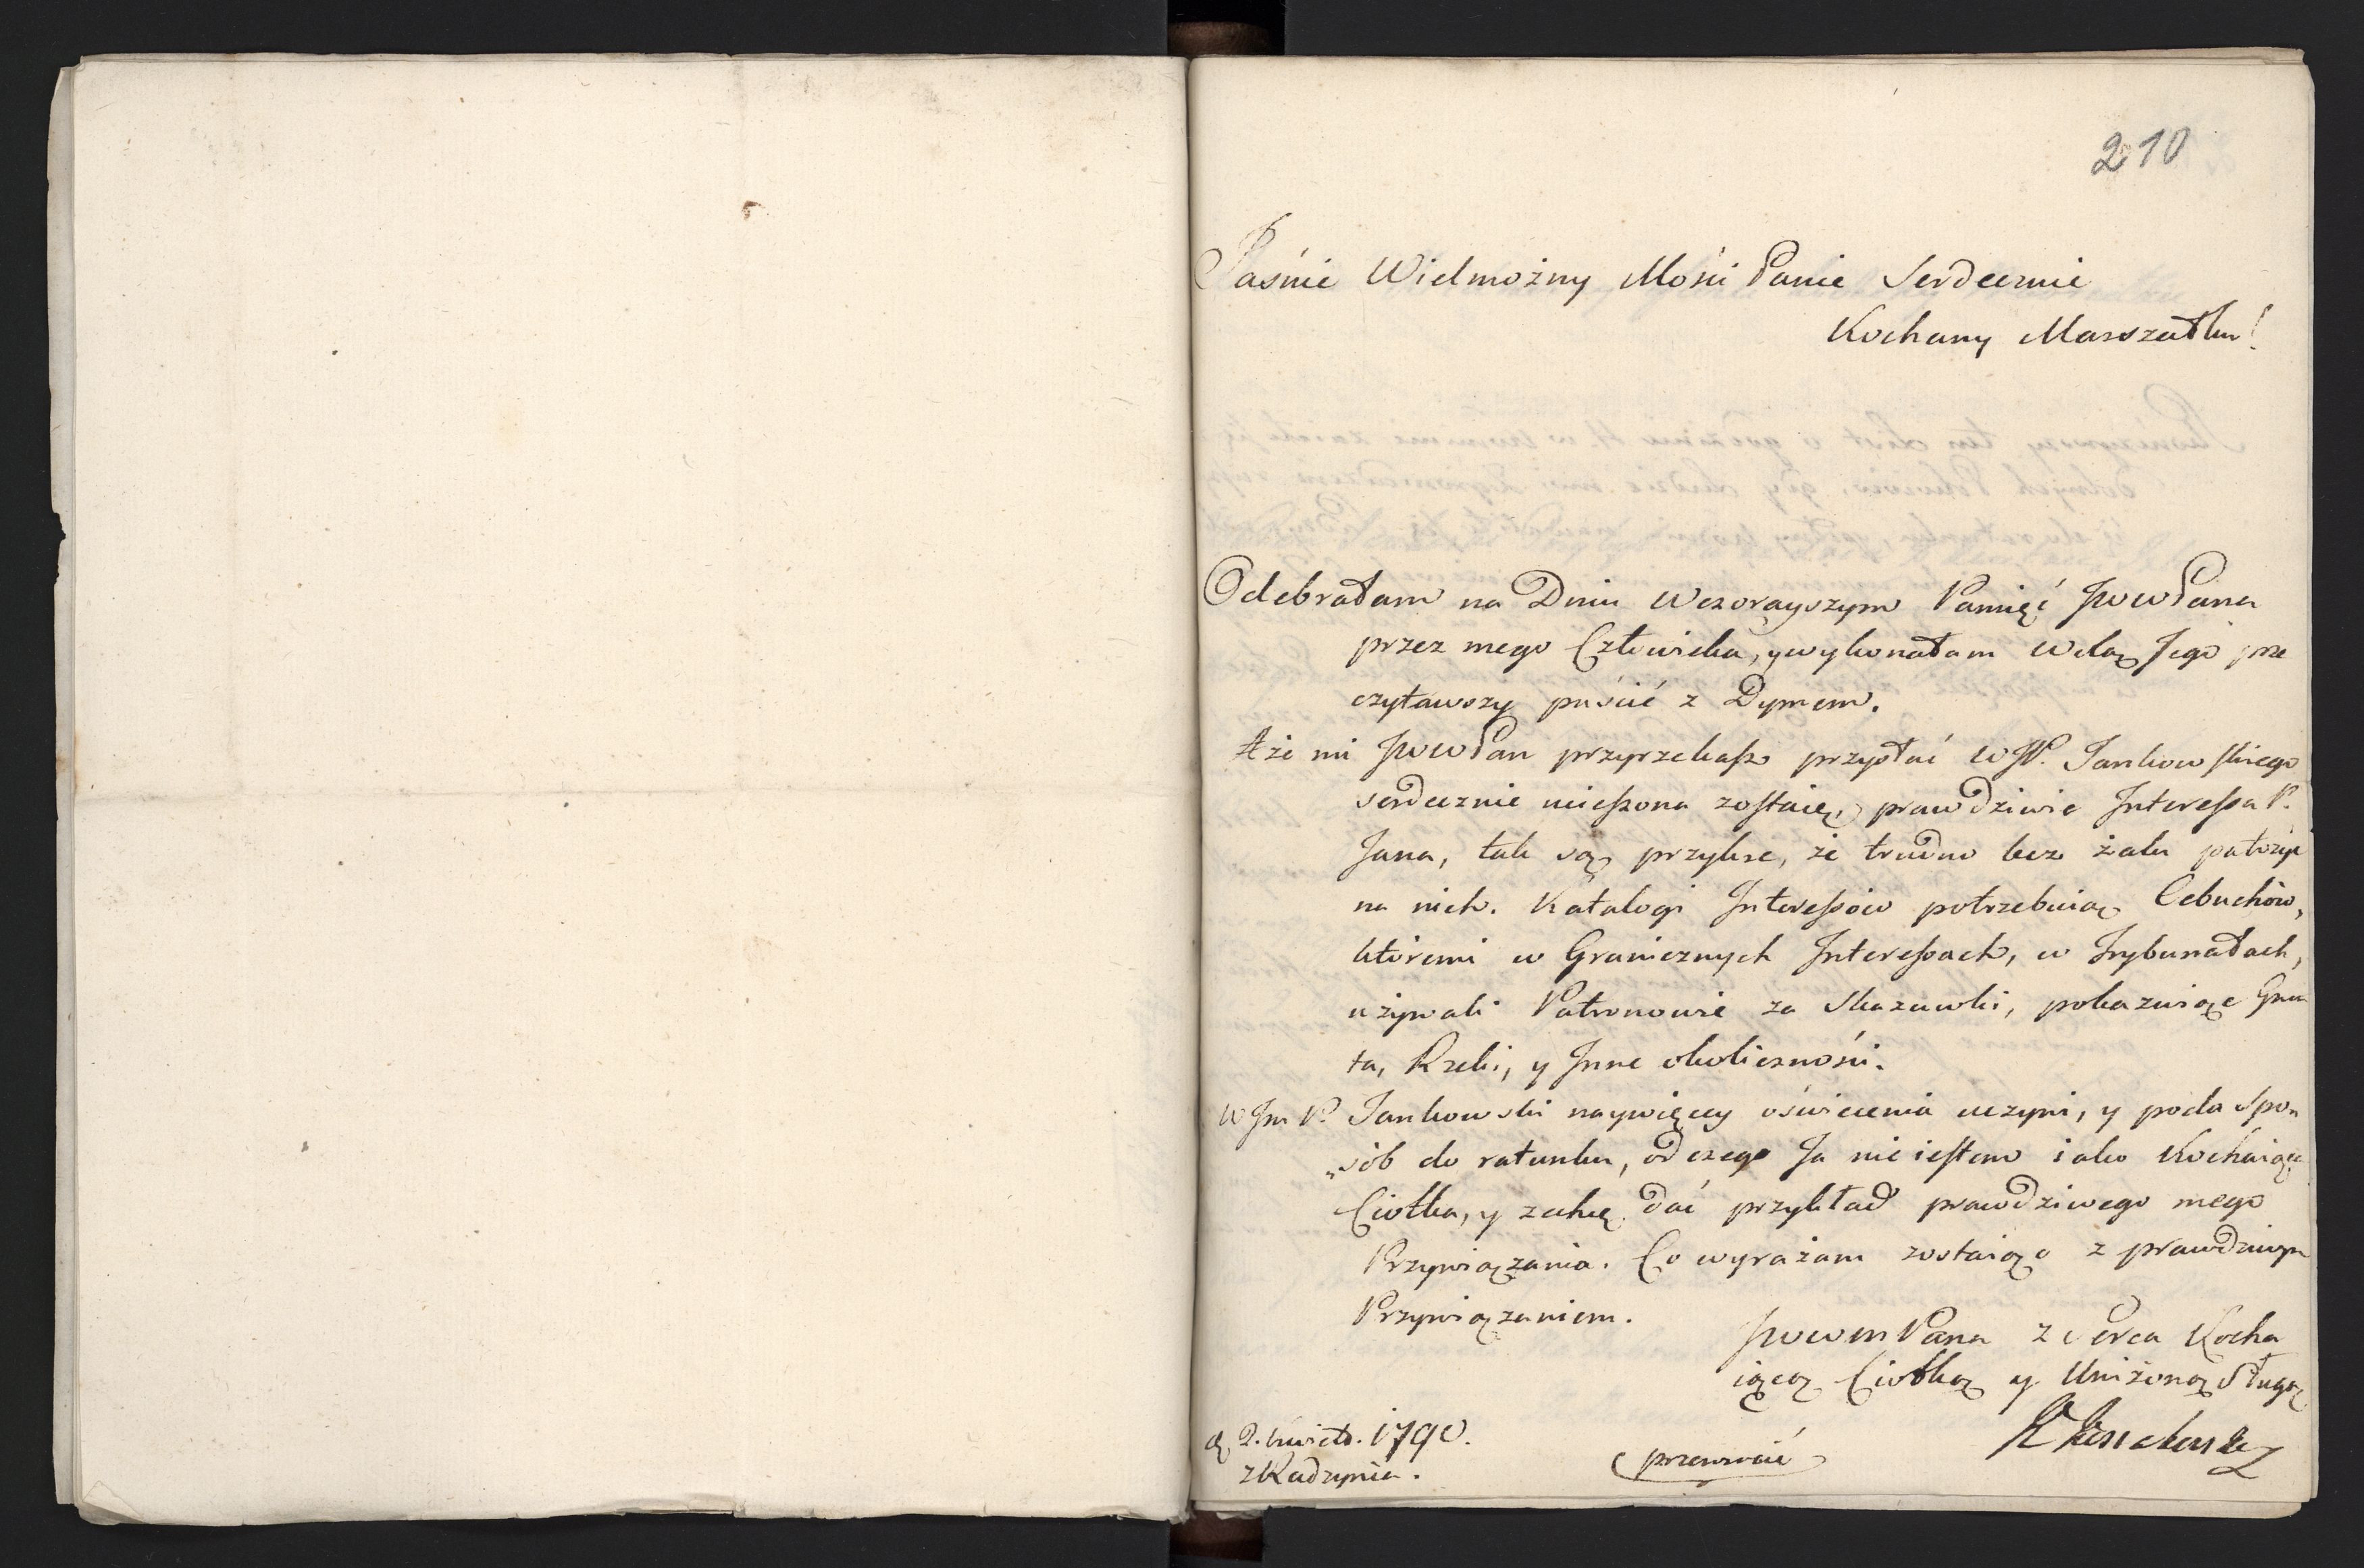 210
Jaśnie Wielmożny Mości Panie Serdecznie
Kochany Marszałku!
Odebrałam na Dniu Wczorayszym Pamięć JWWPana
przez mego Człowieka, y wykonałam Wolą Jego prze
czytawszy puścić z Dymem.
A że mi JWWPan przyrzekasz przysłać WJP. Jankowskiego
serdecznie ucieszona zostaię, prawdziwie Interessa P.
Jana, tak są przykre, że trudno bez żalu patrzyć
na nich. Katalogi Interessów potrzebuią Cebuchów,
któremi w Granicznych Interessach, w Trybunałach,
używali Patronowie za Skazuwki, pokazuiąc Grun
ta, Rzeki, y Inne okoliczności.
WJmP. Jankowski naywięcy oświecenia uczyni, y poda Spo„
„sób do ratunku, od czego Ja nie iestem iako Kochaiąca
Ciotka, y zechcę dać przykład prawdziwego mego
Przywiązania. Co wyrażam zostaiąc z prawdziwym
Przywiązaniem.
JWWmPana z Serca Kocha
iącą Ciotką y Uniżoną Sługą
d. 2. Kwiet. 1790.
z Radzynia.
przewrócić